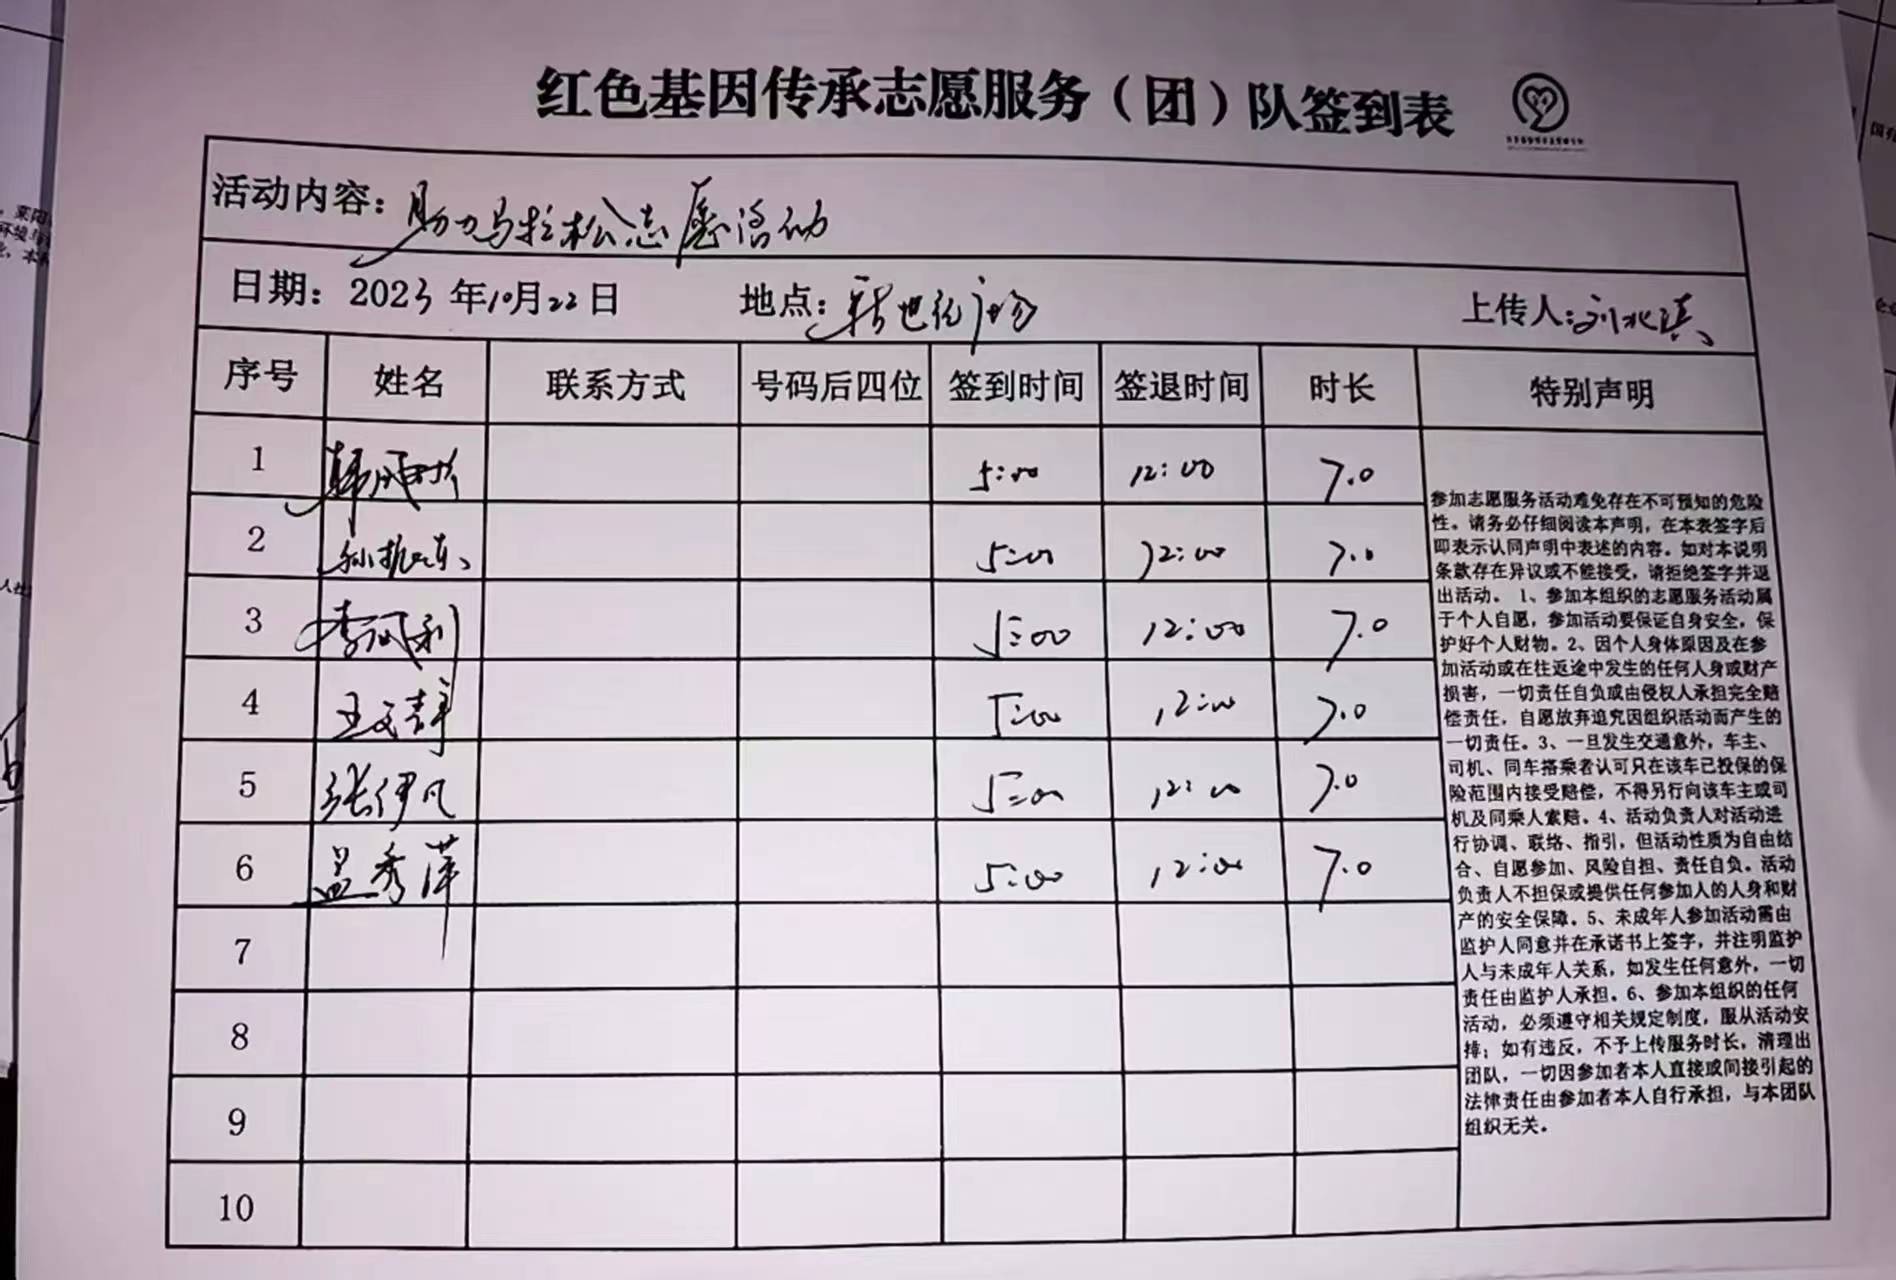 红色基因传承志愿服务（团）队签到表
活动内容：助力马拉松志愿活动
日期：2023年10月22日 地点：新世纪广场 上传人：刘北淇
序号 姓名 联系方式 号码后四位 签到时间 签退时间 时长 特别声明
1 5:00 12:00 7.0
2 5:00 12:00 7.0
3 李凤利 5:00 12:00 7.0
4 王文静 5:00 12:00 7.0
5 张伊凡 5:00 12:00 7.0
6 孟秀萍 5:00 12:00 7.0
7
8
9
10
参加志愿服务活动难免存在不可预知的危险
性。请务必仔细阅读本声明，在本表签字后
即表示认同声明中表述的内容。如对本说明
条款存在异议或不能接受，请拒绝签字并退
出活动。 1、参加本组织的志愿服务活动属
于个人自愿，参加活动要保证自身安全，保
护好个人财物。2、因个人身体原因及在参
加活动或在往返途中发生的任何人身或财产
损害，一切责任自负或由侵权人承担完全赔
偿责任，自愿放弃追究因组织活动而产生的
一切责任。3、一旦发生交通意外，车主、
司机、同车搭乘者认可只在该车已投保的保
险范围内接受赔偿，不得另行向该车主或司
机及同乘人索赔。4、活动负责人对活动进
行协调、联络、指引，但活动性质为自由结
合、自愿参加、风险自担、责任自负。活动
负责人不担保或提供任何参加人的人身和财
产的安全保障。5、未成年人参加活动需由
监护人同意并在承诺书上签字，并注明监护
人与未成年人关系，如发生任何意外，一切
责任由监护人承担。6、参加本组织的任何
活动，必须遵守相关规定制度，服从活动安
排；如有违反，不予上传服务时长，清理出
团队，一切因参加者本人直接或间接引起的
法律责任由参加者本人自行承担，与本团队
组织无关。